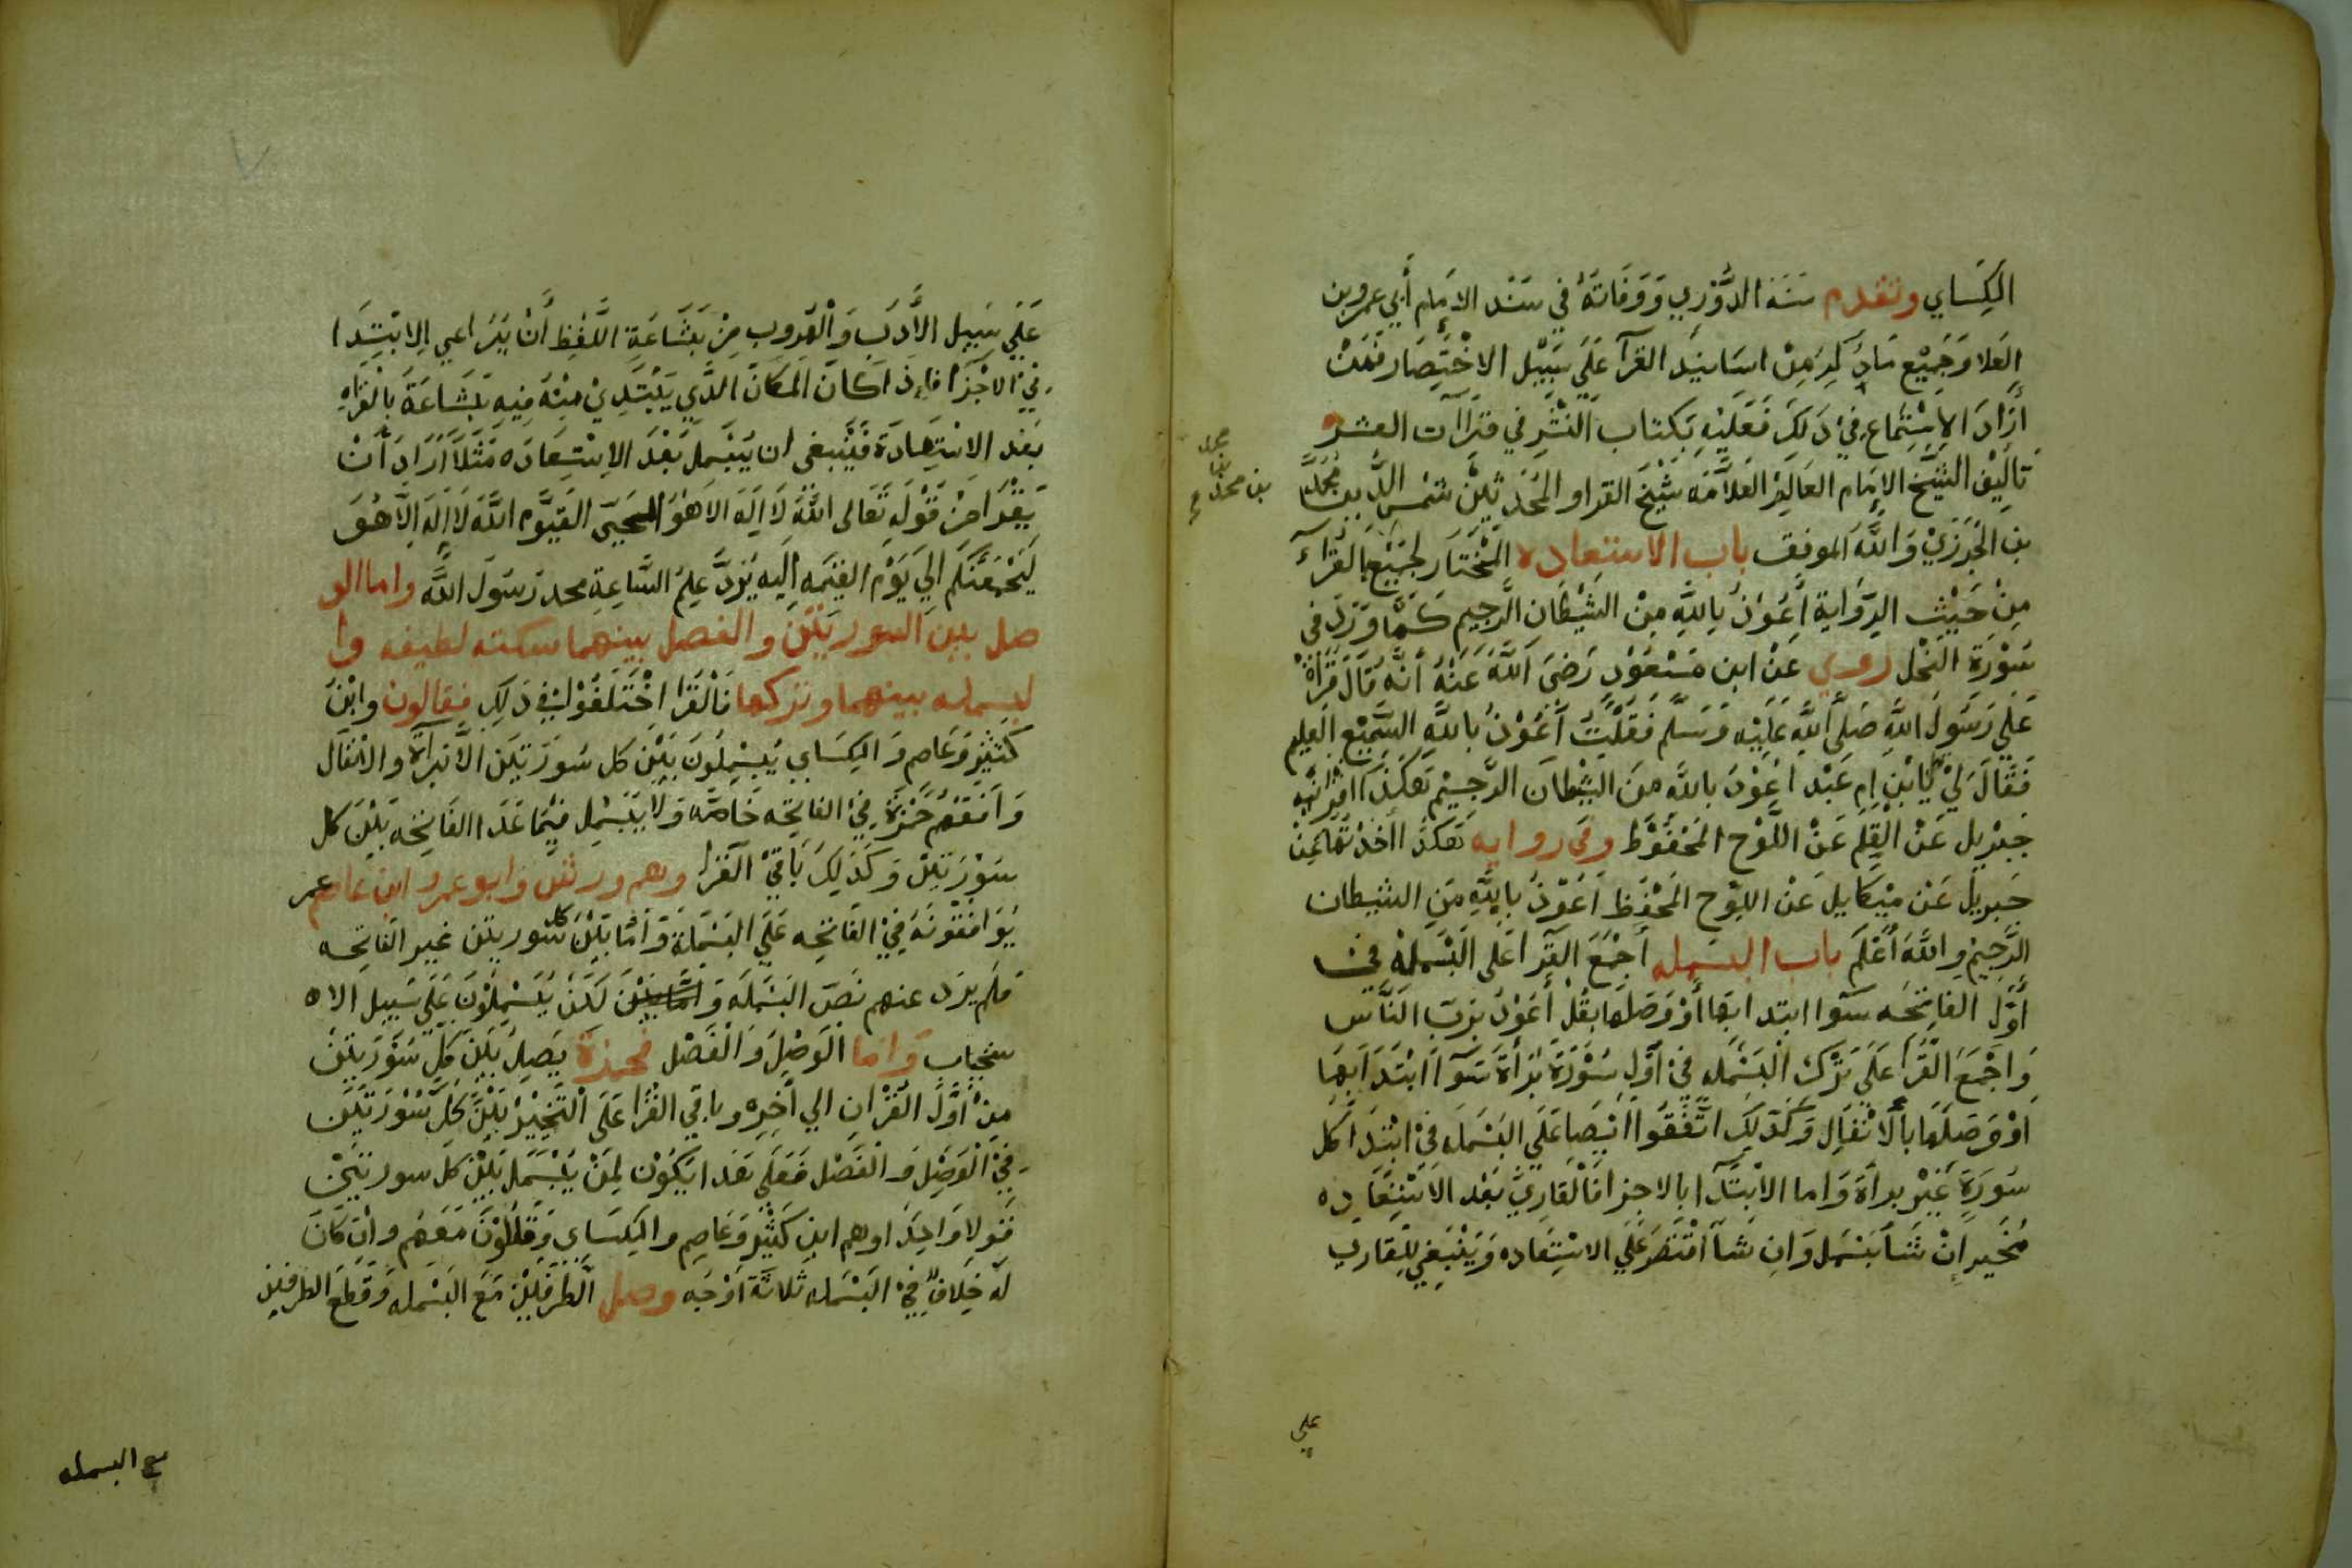 الكِسَاي وتقدم سَنَة الدُّوْرِي وَوَفَاتَهُ في سَنَد الامَام أَبي عمرو بن
العَلا وَجَمِيْع مَاذُكِرَ مِنْ اسَانِيْد القرآ عَلَي سَبِيْل الاخْتِصَار فَمَنْ
أَرَادَ الاسْتِمَاع فيْ ذَلِكَ فَعَلَيْهِ بَكتاب النَّشْرِ في قِرَاآت العشر
تاليْف الشَّيْخ الامَام العَالِم العَلاَّمَه شَيْخ القرا والمُحَدِّثِيْن شمْس الدِّين مُحَمَّد
بن محمد بن محمد
بن الجَزَرِيْ وَاللَّهُ الموفق باب الاستعاده المُخْتَار لجَمِيْع القُرَّآء
مِنْ حَيْث الرِّوَاية أَعُوْذُ بِاللَّهِ مِنَ الشَّيْطَان الرَّجِيم كَمَا وَرَدَ في
سُوْرَةِ النَّحْل رُوي عَنْ ابن مَسْعُوْد رَضيَ اللَّهُ عَنْهُ أَنَّهُ قَالَ قَرَأْتُ
عَلَي رَسُوْل اللَّهِ صَلَّي اللَّهُ عَلَيْهِ وَسَلَّم فَقُلْتُ أَعُوْذُ بِاللَّهِ السَّمِيْع العَلِيم
فَقَالَ لِيْ يَا ابْنَ امِ عَبْد اعُوْذُ باللَّهِ مِنَ الشَّيْطَان الرَّجِيْم هَكَذَا اقْرَأنِيهِ
جِبْرِيل عَنْ القَلَم عَنْ اللَّوْح المَحْفُوْظ وفي روايه هَكَذَا اخَذْتُهَا مِنْ
جِبرِيل عَنْ مِيْكَايل عَنْ اللوْح المَحْفُظ أَعُوْذُ بِاللَّهِ مِنَ الشيطان
الرَّجِيْمِ وَاللَّهُ أَعْلَم باب البسمله أَجْمَعَ القرَا عَلي الْبَسْمَلَةْ في
أَوَّل الفاتِحَه سوا ابتدا بهَا أوْ وَصَلَهَا بقُلْ أَعُوْذُ بِرَبِّ النَّاس
وَاجْمَعَ القُرَّا عَلَي تَرْك البَسْمَله فيْ اَوَّلِ سُوْرَة بَرَأةَ سَوَآ ابْتَدَا بِهَا
اوْ وَصَلَهَا بِالاَنْفَال وَكَذَلِكَ اتَّفَقُوا ايْضا عَلَي البَسْمَله في ابْتِدَا كل
سُورَةِ غَيْر براة وَاما الابْتِدَا بالاجزا فَالْقَارِيْ بَعْد الاسْتِعَاذه
مُخَير اِنْ شَا بَسْمَل وَانْ شَا اقْتَصَرَ عَلَي الاسْتِعَاده وَيَنْبَغِي لِلْقَاري
علي
عَلَي سَبِيل الأَدَبِ وَالْهُرُوب مِنْ بَشَاعَةِ اللَّفْظ أَنْ يُرَاعي الابْتِدَا
فيْ الاَجْزَا فَاِذَا كَانَ المَكَانَ الَّذِي يَبْتَدِيْ مِنْهُ فِيهِ بَشَاعَةَ بالْقراهِ
بَعْد الاسْتِعَادَة فَيَنْبغي ان يُبَسْمِل بَعْدَ الاسْتِعَادَه مَثَلاً أَرَادَ أَنْ
يَقْرَا مِنْ قَوْلَهِ تَعَالى اللَّهُ لَا اِلَهَ الاَ هُوَ الحَيّ القَيُّوم اللَّهُ لَا اِلَهَ اِلاَّ هُوَ
لَيَجْمَعَنَّكُم اِلَي يَوْم القيَمَه اِلَيه يُرَدُّ عِلمُ السَّاعِة محمد رَسُوْل اللَّهِ واما الو
صل بين السورتَيْن والفصل بينهما سكته لطيفه وا
لبسمله بينهما وتركها فَالْقُرَّا اخْتَلَفُوْا فيْ ذَلِكَ فقالون وابْنَ
كَثِيْر وَعَاصِم وَالكِسَاي يُبَسْمِلُونَ بَيْنَ كل سُوْرَتَيْنِ الاَّ بَرَآةَ والانفَال
وَافَقَهُمْ حَمْزَةَ في الفاتِحَه خَاصَّه وَلاَ يُبَسْمِل فِيْمَا عَدَا الفَاتِحَه بَيْنَ كل
سُوْرَتَيْن وَكَذَلِكَ بَاقِيْ القُرَّا وهم ورش وابو عمرو وابن عامر
يُوَافقُوْنَهُ فيْ الفَاتِحَه عَلَي البَسْمَلَة وَأمَّا بَيْنَ كل سُورتَيْن غير الفَاتِحَه
فَلَم يَرِد عنهم نَصّ البَسْمَلَه لَكِنْ يُبَسْمِلُوْنَ عَلَي سَبِيل الاه
ستحباب وَامَا الْوَصْل وَالْفَصْل فحمزة يَصِلُ بَيْنَ كُلّ سُوْرَتَيْن
مِنْ أَوَّل القُرْان الي أَخِره وباقي القُرَّا عَلَى التَّخْيِيْر بَيْنَ كُلّ سُوْرَتَيْن
فيْ الْوَصْل وَالْفَصْل فَعَلَي هَذا يَكُوْن لِمَنْ يُبَسْمِل بَيْنَ كُل سورتَيْن
قَولاً وَاحِدًا وهم ابن كَثِيْر وَعَاصِم والكِسَاي وَقَالُوْنَ مَعَهُم وانْ كَانَ
لَهُ خِلَافٌ فيْ البَسْمَله ثلاثَة اوْجُه وصل الطَّرَفَيْن مَعَ البَسْمَله وَقَطَع الطرفين
مع البسمله